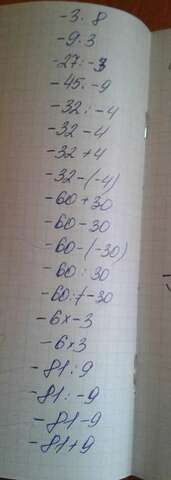 -3 . 8
-9 . 3
-27 : -3
-45 : -9
-32 : -4
-32 - 4
-32 + 4
-32 - (-4)
-60 + 30
-60 - 30
-60 - (-30)
-60 : 30
-60 : (-30
-6 x -3
-6 x 3
-81 : 9
-81 : -9
-81 - 9
-81 + 9